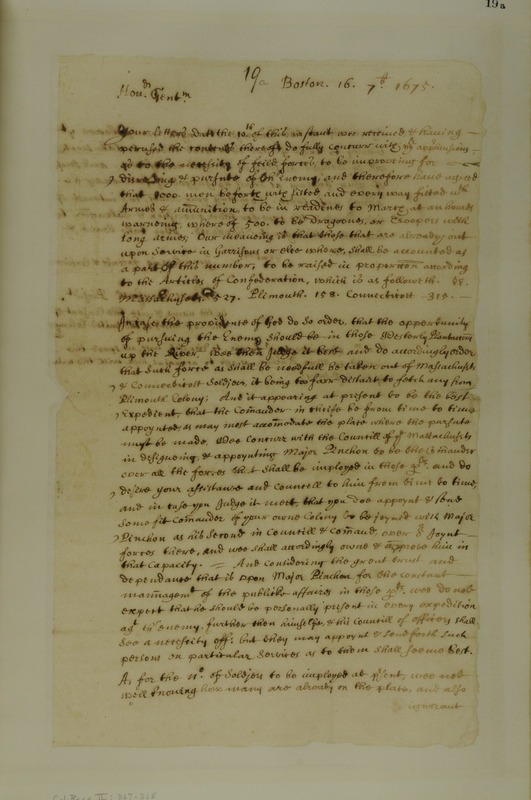 19a
19a Boston. 16. 7th 1675.
Honrd Gentm
Your letters date the 10th of this instant wee received & having
perused the contents thereof do fully concurr with yr apprehension
as to the necessity of feild forces, to be improving for
discovery & pursute of the Enemy, and therefore have agreed
that 1000 men be forthwith listed and every way fitted wth
Armes & amunition, to be in readines to March at an houres
warneing, whereof 500. to be dragoones, or troopers with
long armes; Our meaneing is that those that are already out
upon service in Garrisons or else where, shall be accounted as
a part of this number, to be raised in proportion according
to the Articles of Confederation, which is as followeth.
Massachusets 527. Plimouth. 158. Connecticott 315.
In case the providence of God do so order, that the opportunity
of pursuing the Enemy should be in those Westerly Plantations
up the River wee then Judge it best and do accordingly order
that such forces as shall be needfull be taken out of Massachusets
& Connecticott Soldiers, it being too farr distant to fetch any from
Plimouth Colony; And it appearing at present to be the best
expedient, that the Comander in cheife be from time to time
appoynted as may most accomodate the place where the pursute
must be made, Wee Concurr with the Councill of ye Massachusets
in designeing & appoynting Major Pinchon to be the Comander
over all the forces that shall be imployed in those pts, and do
desire your assistance and councell to him from time to time,
and in case you Judge it meet, that you doe appoynt & send
some fit Comander of your owne Colony to be joyned with Major
Pinchon as his second in Councill & Comand, over ye Joynt
forces there, and wee shall accordingly owne & approve him in
that Capacity. And considering the great trust and
dependance that is upon Major Pinchon for the constant
mannagemt of the publicke affaires in those pts, wee do not
expect that he should be personally present in every expedition
agt the enemy, further then himselfe, & his Councill of officers shall
see a necessity off: but they may appoynt & send forth such
persons on particular services as to them shall seeme best.
As for the No. of Soldiers to be imployed at psent, wee not
well knowing how many are already on the place, and also
ignorant